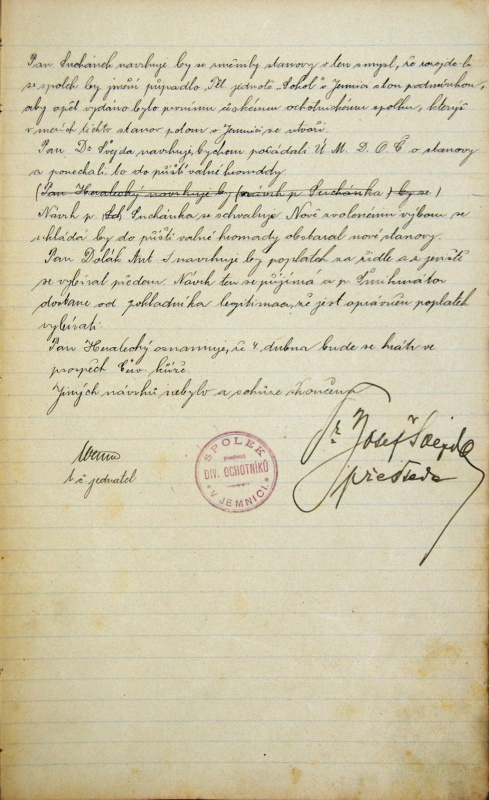 Pan Suchánek navrhuje by se změnily stanovy v ten smysl, že rozejde-li
se spolek by jmění připadlo Těl. jednotě "Sokol" v Jemnici s tou podmínkou,
aby opět vydáno bylo prvnímu českému ochotnickému spolku, kterýž
v mezích těchto stanov potom v Jemnici se utvoří.
Pan Dr Švejda navrhuje, bychom požádali Ú. M. D. O. Č. o stanovy
a ponechali to do příští valné hromady.
(Pan Hualecký navrhuje by (návrh p. Suchánka) by se)
Návrh p. Suchánka se schvaluje. Nově zvolenému výboru se
ukládá by do příští valné hromady obstaral nové stanovy.
Pan Dolák Ant. navrhuje by poplatek za židle a se
se vybíral předem. Návrh ten se přijímá a p.
dostane od pokladníka legitimaci, že jest oprávněn poplatek
vybírati.
Pan Hualecký oznamuje, že 4 dubna bude se hráti ve
prospěch kůže.
Jiných návrhů nebylo a schůze skončena.
Dr. Josef Švejda
předseda
t. č. jednatel
SPOLEK
DIV. OCHOTNÍKŮ
V JEMNICI.